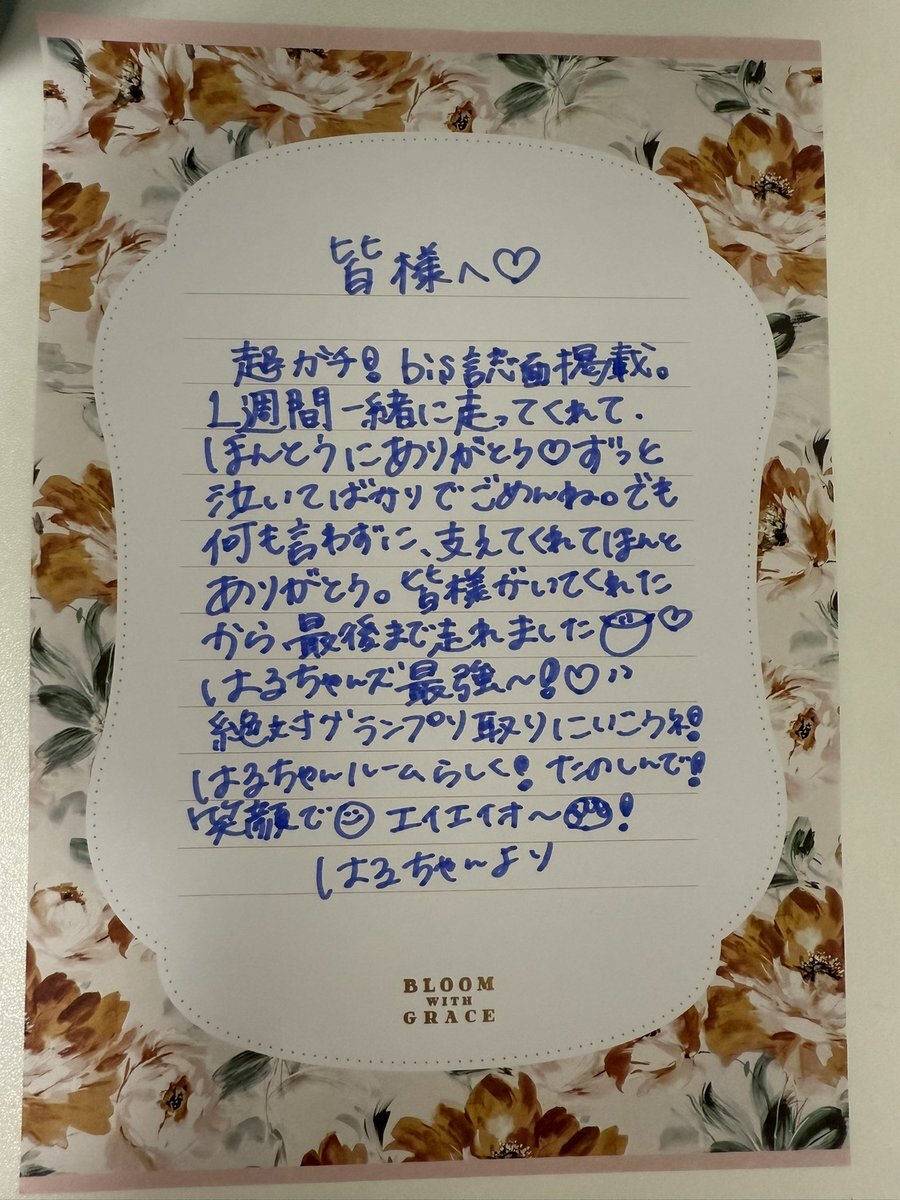 皆様へ♡
超ガチ! bis誌面掲載。
1週間一緒に走ってくれて.
ほんとうにありがとう♡ずっと
泣いてばかりでごめんね。でも
何も言わずに、支えてくれてほんと
ありがとう。皆様がいてくれた
から最後まで走れました♡
はるちゃんズ最強〜!♡
絶対グランプリ取りにいこうね!
はるちゃんルームらしく! たのしんで!
笑顔で☺ エイエイオ〜!
はるちゃんより
BLOOM
WITH
GRACE